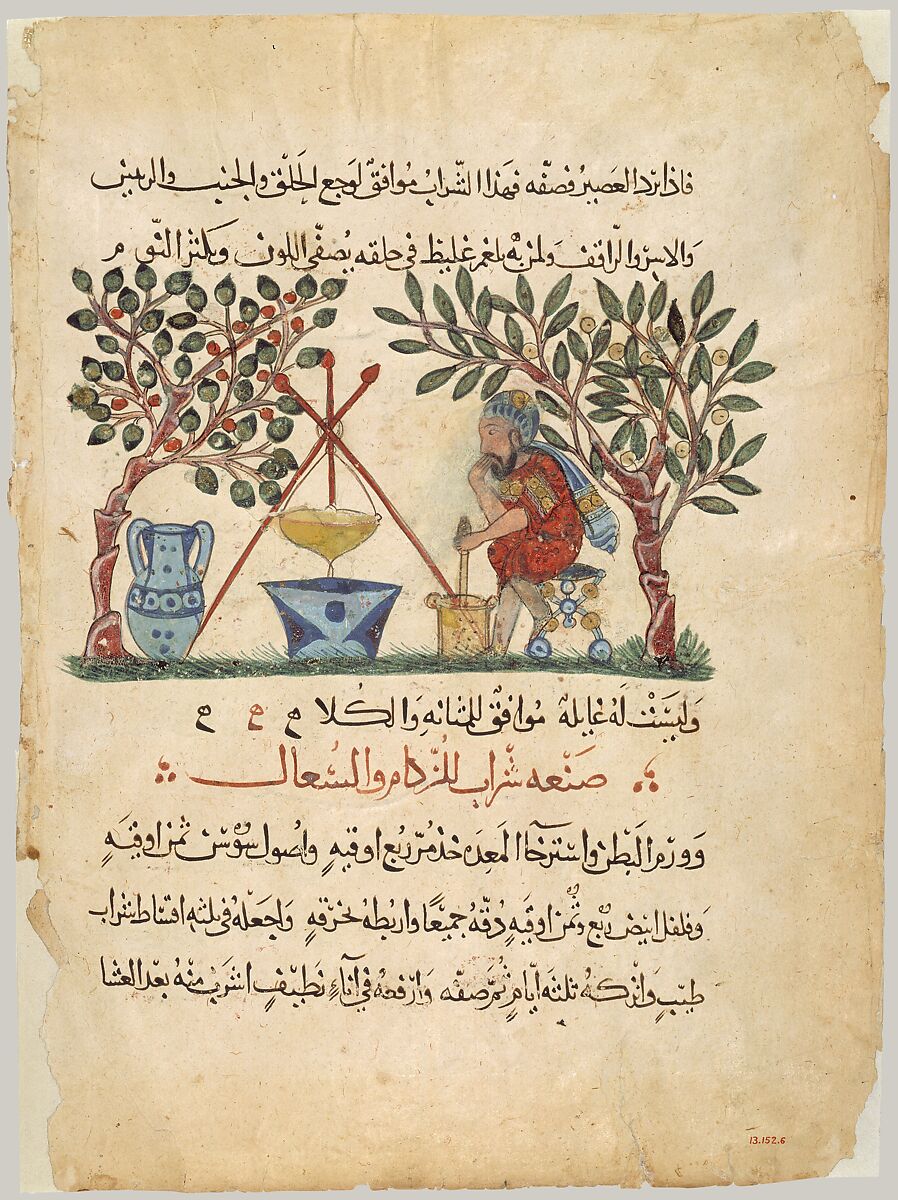 فاذا برد العصير فصفه فهذا الشراب موافق لوجع الحلق والجنب والرئتين
ولمن به بلغم غليظ في حلقه يصفي اللون ويكثر النوم
وليست له غايلة موافق للمثانه والكلا ح ح ح
صنعه شراب للزكام والسعال
وورم البطن واسترخا المعده خذ مر ربع اوقيه واصول سوس ثمن اوقيه
وفلفل ابيض ربع وثمن اوقيه دقه جميعا واربطه بخرقه واجعله في ثلثه اقساط شراب
طيب واتركه ثلثه ايام ثم صفه وارفعه في اناء نظيف اشرب منه بعد العشا
13.152.6